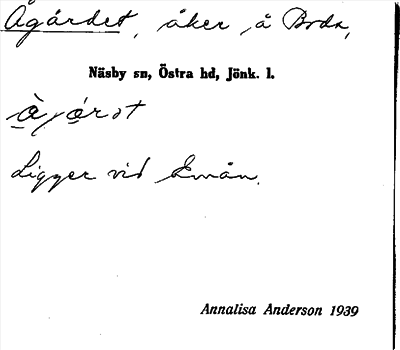 Ågärdet, åker å Boda,
Näsby sn, Östra hd, Jönk. l.
Ligger vid Emån.
Annalisa Anderson 1939